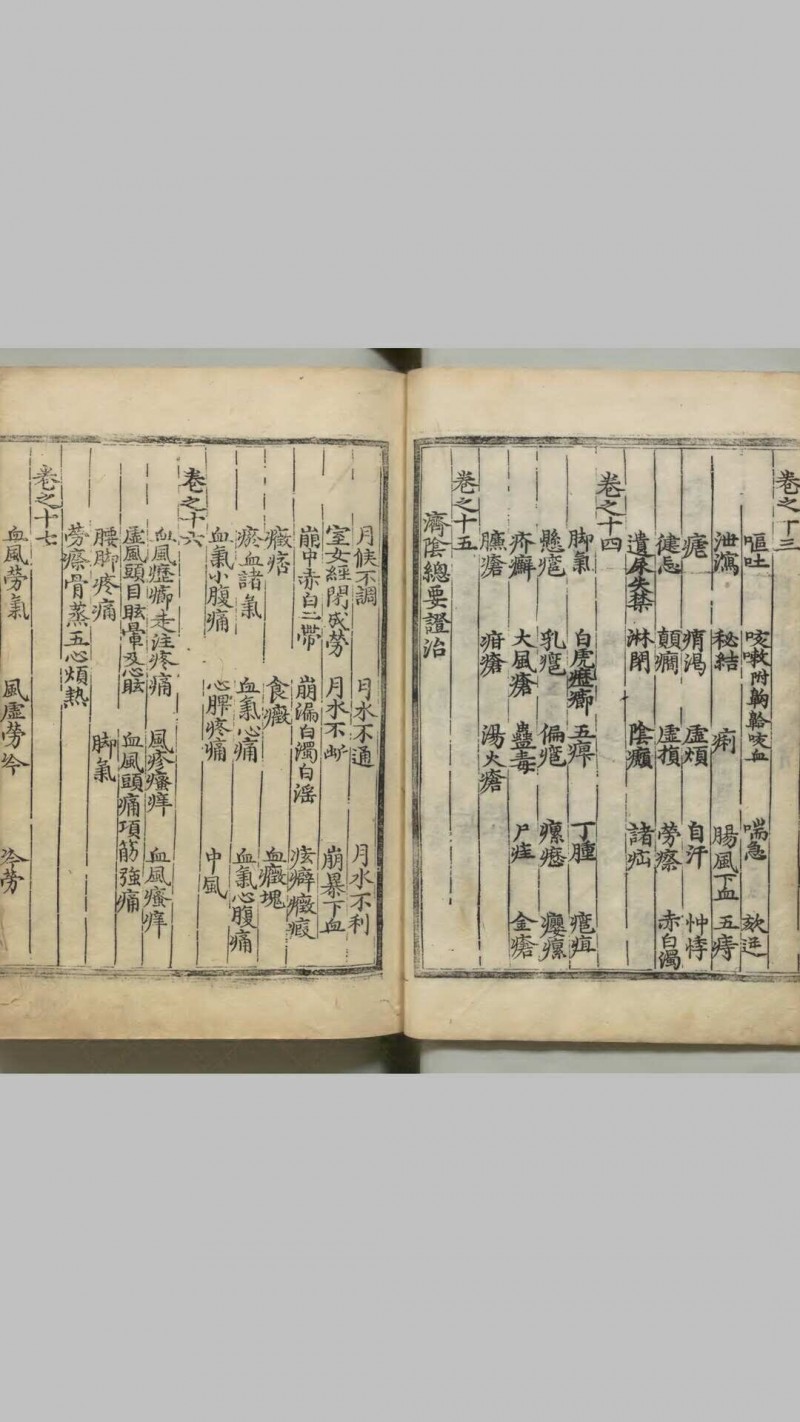 卷之十三
嘔吐 咳嗽附齁䶎咳血 喘急 欬逆
泄瀉 秘結 痢 腸風下血 五痔
瘧 痟渴 虛煩 自汗 忡悸
健忘 顛癎 虛損 勞瘵 赤白濁
遺尿失禁 淋閉 陰㿗 諸疝
卷之十四
脚氣 白虎歷癤 五痺 丁腫 疽
懸 乳 偏 瘰 癭瘰
疥癬 大風瘡 蠱毒 尸疰 金瘡
臁瘡 瘡 湯火瘡
卷之十五
濟陰總要證治
月候不調 月水不通 月水不利
室女經閉成勞 月水不斷 崩暴下血
崩中赤白二帶 崩漏白濁白淫 痃癖癥瘕
癥痞 食癥 血癥塊
瘀血諸氣 血氣心痛 血氣心腹痛
血氣小腹痛 心脾疼痛 中風
卷之十六
血風歷癤走注疼痛 風疹瘙痒 血風瘙痒
虛風頭目眩暈及心眩 血風頭痛項筋強痛
腰脚疼痛 脚氣
勞瘵骨蒸五心煩熱
卷之十七
血風勞氣 風虛勞冷 冷勞